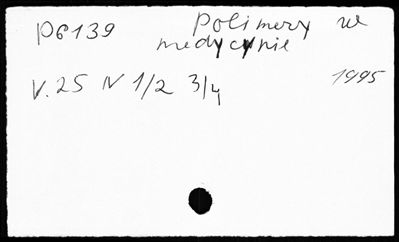 P6139 Polimery w
medycynie
V.25 N 1/2 3/4 1995